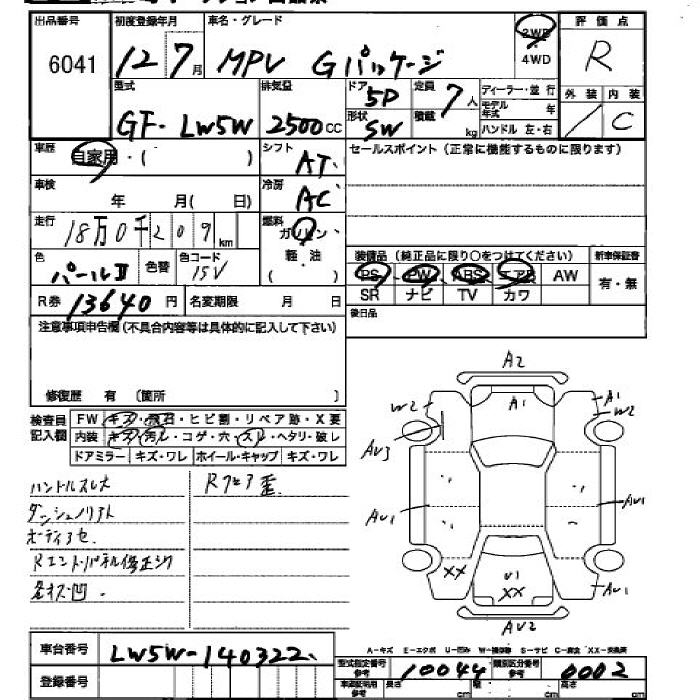 出品番号
6041
初度登録年月
12 7月
車名・グレード
MPV Gパッケージ
2WD
4WD
評価点
R
型式
GF-LW5W
排気量
2500cc
ドア
5P
形状
SW
定員
7人
積載
kg
ディーラー・並行
モデル年式 年
ハンドル 左・右
外装 内装
/ C
車歴
自家用・( )
シフト
AT
セールスポイント(正常に機能するものに限ります)
車検
年 月( 日)
冷房
AC
走行
18万0千209km
燃料
ガソリン
軽・油
( )
色
パールⅡ
色替
色コード
15V
装備品(純正品に限り○をつけてください)
PS PW ABS エアB AW
SR ナビ TV カワ
新車保証書
有・無
R券
13640円
名変期限 月 日
後日品
注意事項申告欄(不具合内容等は具体的に記入して下さい)
修復歴 有 〔箇所 〕
検査員記入欄
FW キズ・飛石・ヒビ割・リペア跡・X要
内装 キズ・汚レ・コゲ・穴・スレ・ヘタリ・破レ
ドアミラー キズ・ワレ ホイール・キャップ キズ・ワレ
ハンドルスレ大
Rフロア歪
ダッシュノリアト
ボーディアセ
Rエンドパネル修正ジワ
各キズ凹
A2
W2 A1 A1
W2
AV3
AV1 AV1
XX V1
XX AV1
AV2
A-キズ E-エクボ U-凹み W-補修跡 S-サビ C-腐食 XX-交換済
車台番号
LW5W-140322
登録番号
型式指定番号
参考
10044
類別区分番号
参考
0002
車庫証明用
参考
長さ cm 幅 cm 高さ cm